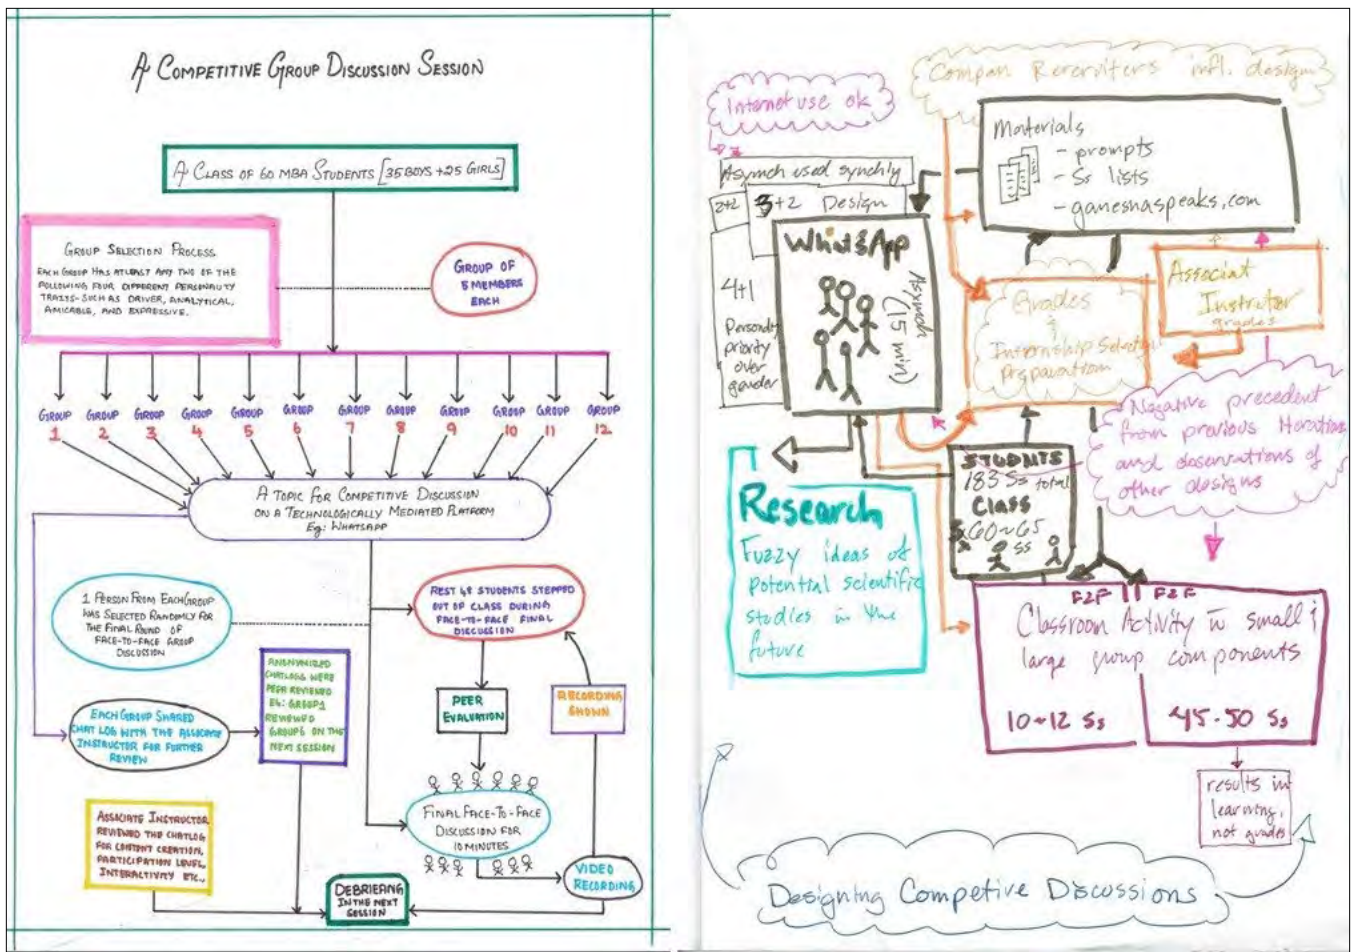 A COMPETITIVE GROUP DISCUSSION SESSION
A CLASS OF 60 MBA STUDENTS [35 BOYS + 25 GIRLS]
GROUP SELECTION PROCESS
EACH GROUP HAS ATLEAST ANY TWO OF THE
FOLLOWING FOUR DIFFERENT PERSONALITY
TRAITS-SUCH AS DRIVER, ANALYTICAL,
AMICABLE, AND EXPRESSIVE.
GROUP OF
5 MEMBERS
EACH
GROUP GROUP GROUP GROUP GROUP GROUP GROUP GROUP GROUP GROUP GROUP GROUP
1 2 3 4 5 6 7 8 9 10 11 12
A TOPIC FOR COMPETITIVE DISCUSSION
ON A TECHNOLOGICALLY MEDIATED PLATFORM
Eg: WHATSAPP
1 PERSON FROM EACH GROUP
WAS SELECTED RANDOMLY FOR
THE FINAL ROUND OF
FACE-TO-FACE GROUP
DISCUSSION
REST 48 STUDENTS STEPPED
OUT OF CLASS DURING
FACE-TO-FACE FINAL
DISCUSSION
EACH GROUP SHARED
CHAT LOG WITH THE ASSOCIATE
INSTRUCTOR FOR FURTHER
REVIEW
ANONYMIZED
CHATLOGS WERE
PEER REVIEWED
EG: GROUP 1
REVIEWED
GROUP 6 ON THE
NEXT SESSION
PEER
EVALUATION
RECORDING
SHOWN
ASSOCIATE INSTRUCTOR
REVIEWED THE CHATLOG
FOR CONTENT CREATION,
PARTICIPATION LEVEL,
INTERACTIVITY ETC.,
FINAL FACE-TO-FACE
DISCUSSION FOR
10 MINUTES
VIDEO
RECORDING
DEBRIEFING
IN THE NEXT
SESSION
Compan Rercruiters infl. design
Internet use ok
Materials
- prompts
- Ss lists
- ganeshaspeaks.com
Asynch used synchly
2+2 3+2 Design
WhatsApp
Asynch
(15 min)
4+1
Personality
priority
over
gender
Grades
Internship Selection
Preparation
Associat
Instrutor
grades
Negative precedent
from previous iterations
and observations of
other designs
STUDNTS
183 Ss total
Class
60~65
ss
Research
Fuzzy ideas of
potential scientific
studies in the
future
F2F F2F
Classroom Activity in small &
large group components
10~12 Ss 45-50 Ss
results in
learning,
not grades
Designing Competive Discussions